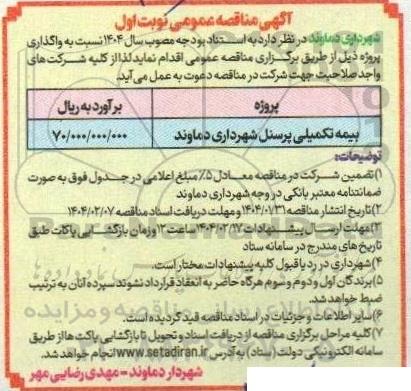 آگهی مناقصه عمومی نوبت اول
شهرداری دماوند در نظر دارد به استناد بودجه مصوب سال ۱۴۰۴ نسبت به واگذاری
پروژه ذیل از طریق برگزاری مناقصه عمومی اقدام نماید لذا از کلیه شرکت های
واجد صلاحیت جهت شرکت در مناقصه دعوت به عمل می‌آید.
پروژه برآورد به ریال
بیمه تکمیلی پرسنل شهرداری دماوند ۷۰/۰۰۰/۰۰۰/۰۰۰
توضیحات:
۱)تضمین شرکت در مناقصه معادل ۵٪ مبلغ اعلامی در جدول فوق به صورت
ضمانتنامه معتبر بانکی در وجه شهرداری دماوند
۲)تاریخ انتشار مناقصه ۱۴۰۴/۰۱/۳۱ و مهلت دریافت اسناد مناقصه ۱۴۰۴/۰۲/۰۷
۳)مهلت ارسال پیشنهادات ۱۴۰۴/۰۲/۱۷ ساعت ۱۳ و زمان بازگشایی پاکات طبق
تاریخ های مندرج در سامانه ستاد
۴)شهرداری در رد یا قبول کلیه پیشنهادات مختار است.
۵)برندگان اول و دوم و سوم هرگاه حاضر به انعقاد قرارداد نشوند سپرده آنان به ترتیب
ضبط خواهد شد.
۶)سایر اطلاعات و جزئیات در اسناد مناقصه قید گردیده است.
۷)کلیه مراحل برگزاری مناقصه از دریافت اسناد و تحویل تا بازگشایی پاکت ها از طریق
سامانه الکترونیکی دولت (ستاد) به آدرس www.setadiran.ir انجام خواهد شد.
شهردار دماوند - مهدی رضایی مهر